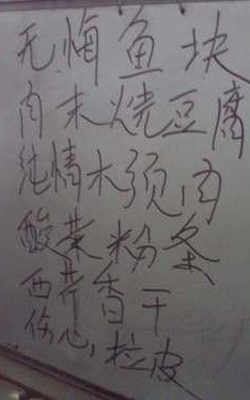 无悔鱼块
肉末烧豆腐
纯情木须肉
酸菜粉条
西芹香干
伤心拉皮